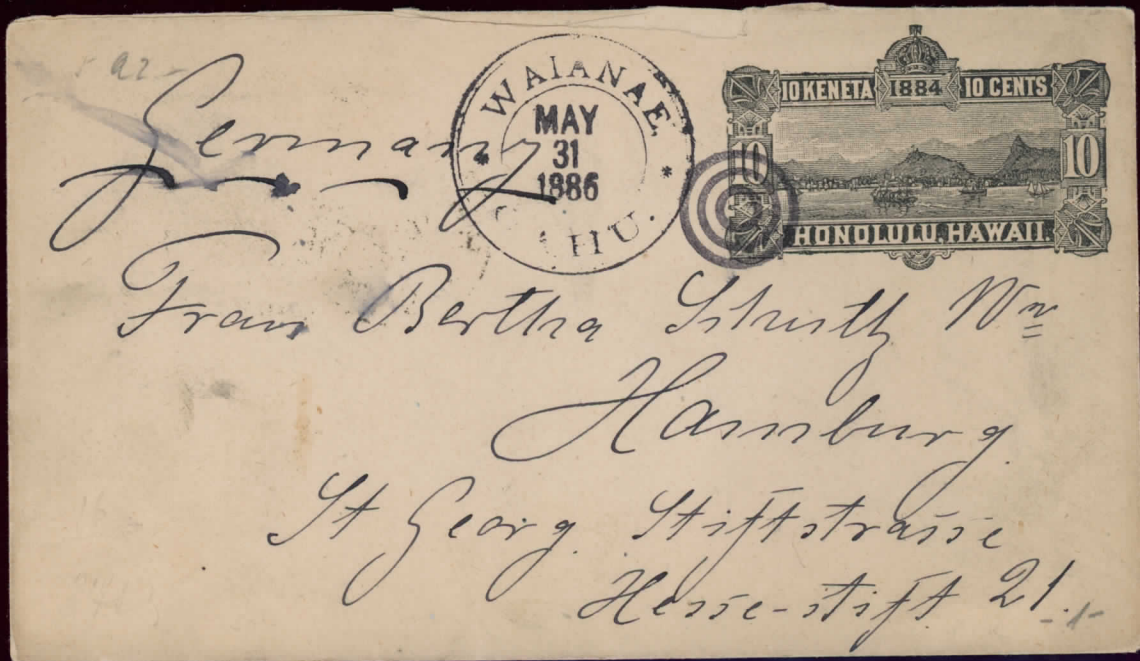 az-
Germany
WAIANAE
MAY
31
1886
AHU.
10 KENETA 1884 10 CENTS
10 10
HONOLULU, HAWAII.
Frau Bertha Schultz Wwe
Hamburg
St Georg. Stiftstrasse
Hesse-stift 21.